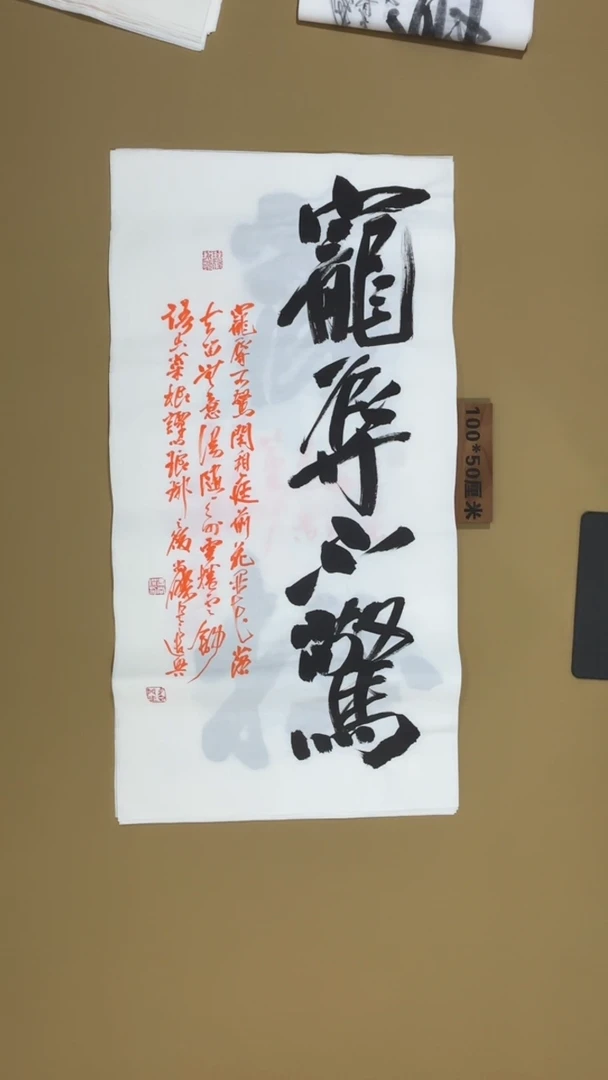 寵辱不驚
寵辱不驚閑看庭前花開花落
去留無意漫隨天外雲卷雲舒
語出菜根譚
100*50厘米